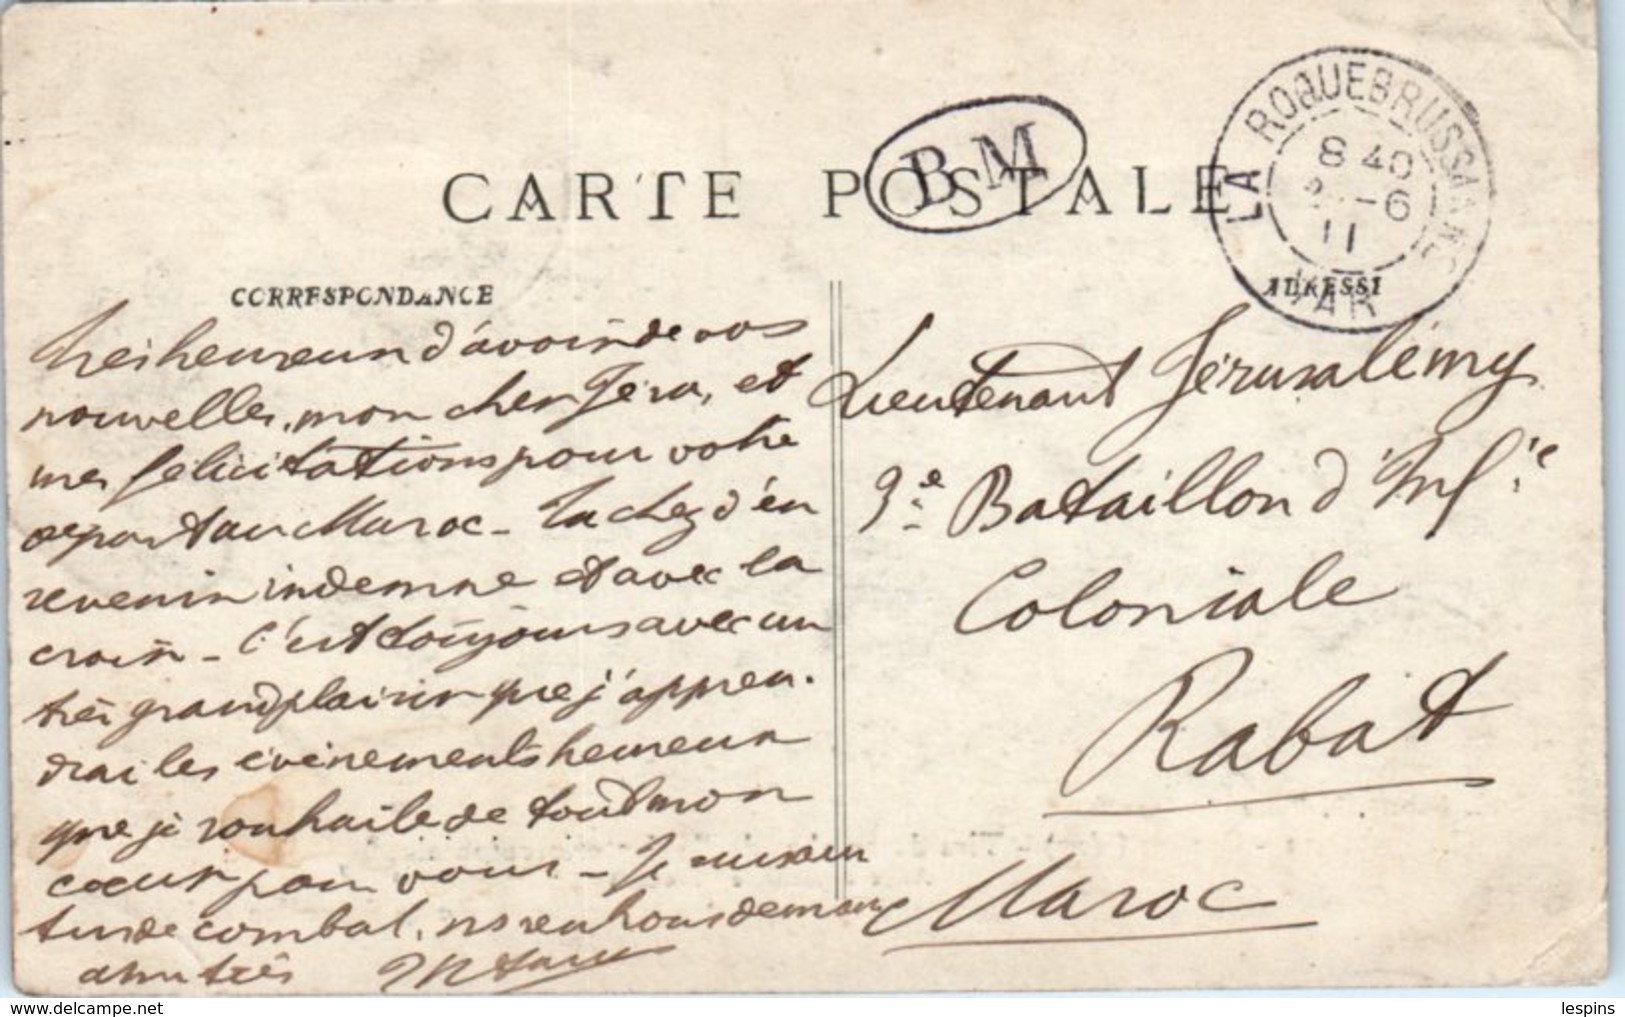 CARTE POSTALE
B M
LA ROQUEBRUSSANNE
8 40
-6
11
VAR
CORRESPONDANCE
ADRESSE
Très heureux d'avoir de vos
nouvelles, mon cher Jéru, et
mes félicitations pour votre
départ au Maroc - Tachez d'en
revenir indemne et avec la
croix - C'est toujours avec un
très grand plaisir que j'appren-
drai les événements heureux
que je souhaite de tout mon
cœur pour vous - Je suis au
tir de combat, ns rentrons demain
Lieutenant Jérusalémy
3e Bataillon d'Infie
Coloniale
Rabat
Maroc
delcampe.net
lespins